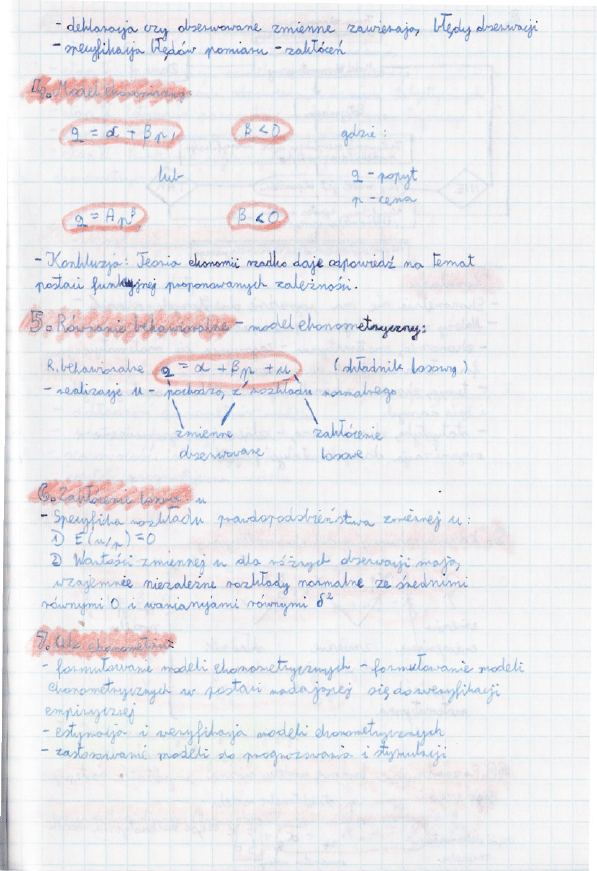 - deklaracja czy obserwowane zmienne zawierają błędy obserwacji
- specyfikacja błędów pomiaru - zakłóceń
4. Model ekonomiczny:
q = α + βp, β < 0 gdzie:
lub q - popyt
p - cena
q = Apᵝ, β < 0
- Konkluzja: Teoria ekonomii rzadko daje odpowiedź na temat
postaci funkcyjnej proponowanych zależności.
5. Równanie behawioralne - model ekonometryczny:
R. behawioralne q = α + βp + u (składnik losowy)
- realizacje u - pochodzą z rozkładu normalnego
zmienne zakłócenie
obserwowane losowe
6. Zakłócenie losowe: u
- Specyfika rozkładu prawdopodobieństwa zmiennej u:
1) E(u/p) = 0
2) Wartości zmiennej u dla różnych obserwacji mają
wzajemnie niezależne rozkłady normalne ze średnimi
równymi 0 i wariancjami równymi δ²
7. Cele ekonometrii:
- formułowanie modeli ekonometrycznych - formułowanie modeli
ekonometrycznych w postaci nadającej się do weryfikacji
empirycznej
- estymacja i weryfikacja modeli ekonometrycznych
- zastosowanie modeli do prognozowania i symulacji